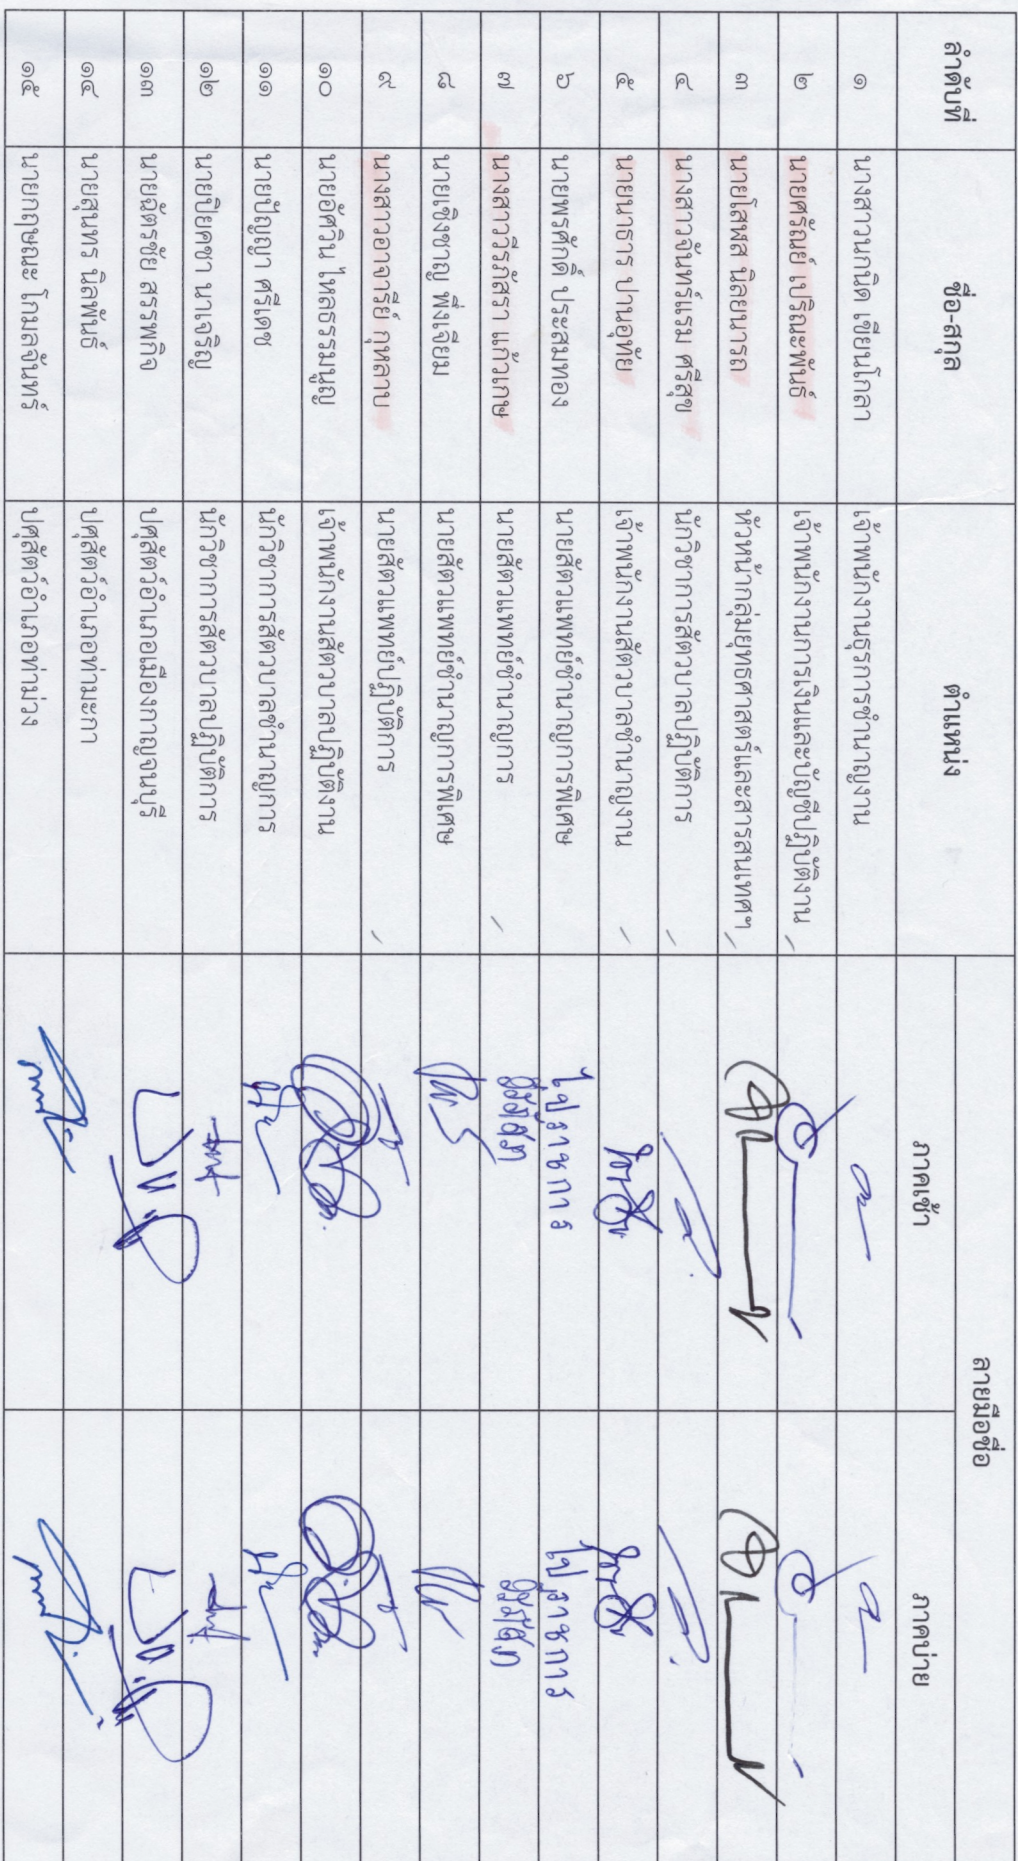 ลำดับที่ ชื่อ-สกุล ตำแหน่ง ลายมือชื่อ
ภาคเช้า ภาคบ่าย
๑ นางสาวนภนิด เขียนโกลา เจ้าพนักงานธุรการชำนาญงาน
๒ นายศรัณย์ เปริณะพันธ์ เจ้าพนักงานการเงินและบัญชีปฏิบัติงาน
๓ นายโสพส นิลยนารถ หัวหน้ากลุ่มยุทธศาสตร์และสารสนเทศฯ
๔ นางสาวจันทร์แรม ศรีสุข นักวิชาการสัตวบาลปฏิบัติการ
๕ นายนาธาร ปานอุทัย เจ้าพนักงานสัตวบาลชำนาญงาน
๖ นายพรศักดิ์ ประสมทอง นายสัตวแพทย์ชำนาญการพิเศษ ไปราชการ ไปราชการ
๗ นางสาววิรภัสรา แก้วเกษ นายสัตวแพทย์ชำนาญการ
๘ นายเชิงชาญ พึ่งเจียม นายสัตวแพทย์ชำนาญการพิเศษ
๙ นางสาวอาจารีย์ กุหลาบ นายสัตวแพทย์ปฏิบัติการ
๑๐ นายอัศวิน ไหลธรรมนูญ เจ้าพนักงานสัตวบาลปฏิบัติงาน
๑๑ นายปัญญา ศรีเดช นักวิชาการสัตวบาลชำนาญการ
๑๒ นายปิยคชา นาเจริญ นักวิชาการสัตวบาลปฏิบัติการ
๑๓ นายฉัตรชัย สรรพกิจ ปศุสัตว์อำเภอเมืองกาญจนบุรี
๑๔ นายสุนทร นิลพันธ์ ปศุสัตว์อำเภอท่ามะกา
๑๕ นายกฤษณะ โกมลจันทร์ ปศุสัตว์อำเภอท่าม่วง